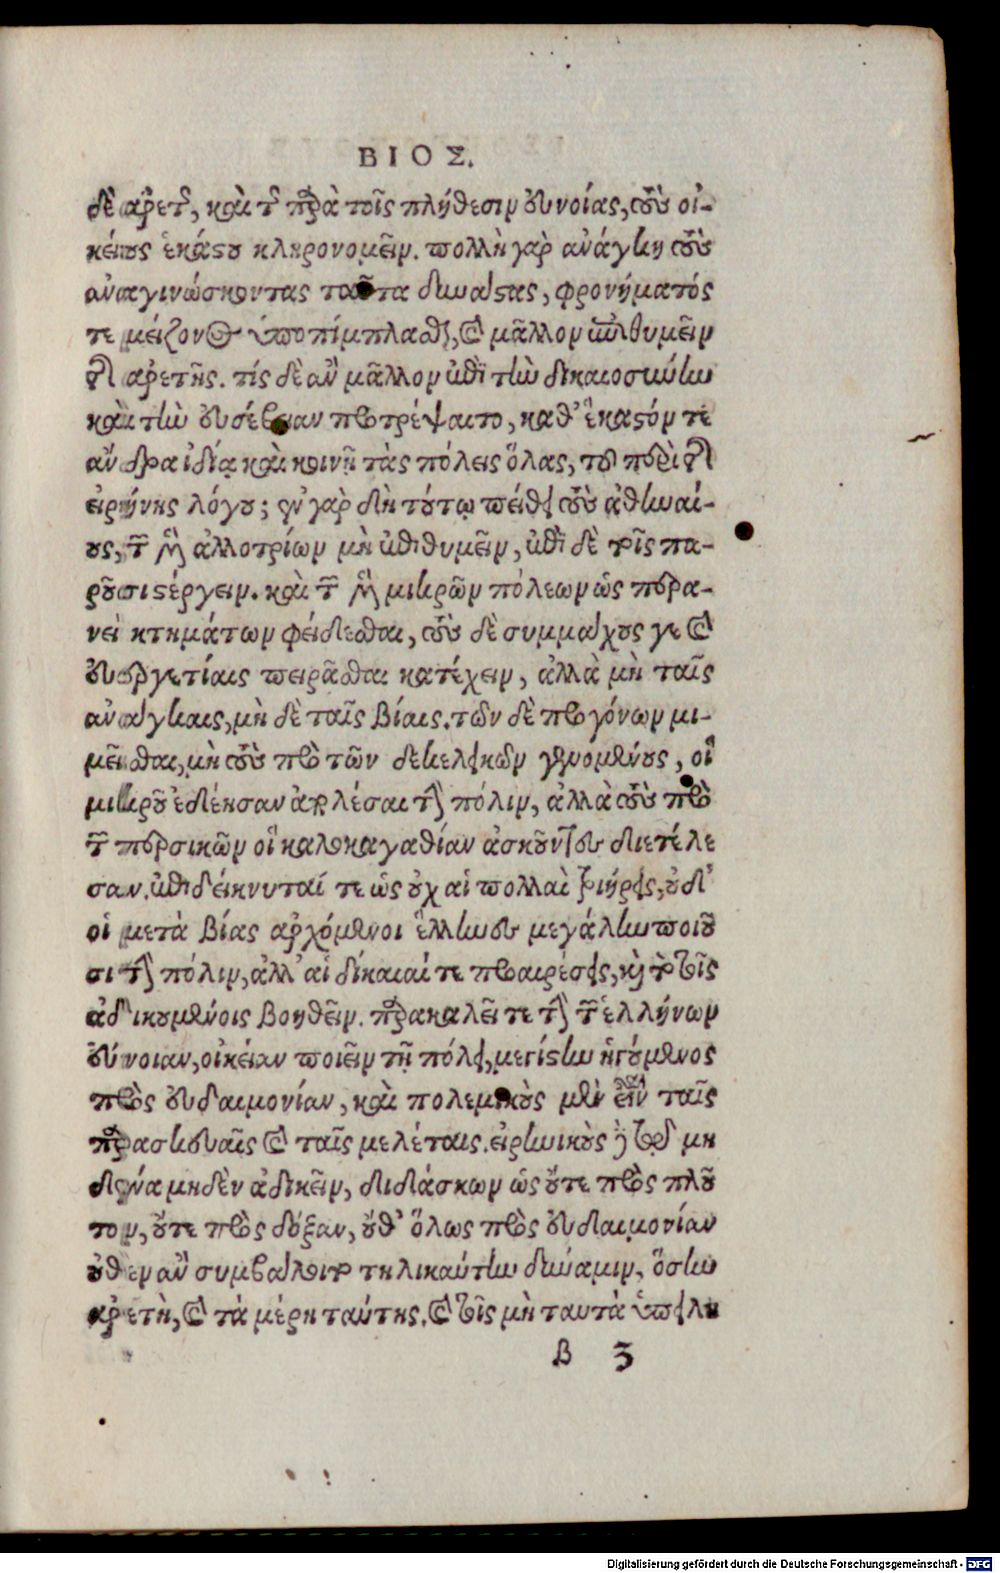 ΒΙΟΣ.
δὲ ἀρετῆς, καὶ τῆς παρὰ τοῖς πλήθεσιν εὐνοίας, τοὺς οἰ-
κείους ἑκάστου κληρονομεῖν. πολλὴ γὰρ ἀνάγκη τοὺς
ἀναγινώσκοντας ταῦτα δυνάστας, φρονήματός
τε μείζονος ὑποπίμπλασθαι, καὶ μᾶλλον ἐπιθυμεῖν
τῆς ἀρετῆς. τίς δὲ ἂν μᾶλλον ἐπὶ τὴν δικαιοσύνην
καὶ τὴν εὐσέβειαν προτρέψαιτο, καθ' ἕκαστόν τε
ἄνδρα ἰδίᾳ καὶ κοινῇ τὰς πόλεις ὅλας, τοῦ περὶ τῆς
εἰρήνης λόγου; ἐν γὰρ δὴ τούτῳ πείθει τοὺς ἀθηναί-
ους, τῶν μὲν ἀλλοτρίων μὴ ἐπιθυμεῖν, ἐπὶ δὲ τοῖς πα-
ροῦσι στέργειν. καὶ τῶν μὲν μικρῶν πόλεων ὡς περα-
νεὶ κτημάτων φείδεσθαι, τοὺς δὲ συμμάχους γε καὶ
εὐεργετίαις πειρᾶσθαι κατέχειν, ἀλλὰ μὴ ταῖς
ἀνάγκαις, μὴ δὲ ταῖς βίαις. τῶν δὲ προγόνων μι-
μεῖσθαι, μὴ τοὺς πρὸ τῶν δεκελεικῶν γενομένους, οἳ
μικροῦ ἐδέησαν ἀπολέσαι τὴν πόλιν, ἀλλὰ τοὺς πρὸ
τῶν περσικῶν οἳ καλοκαγαθίαν ἀσκοῦντες διετέλε
σαν. ἐπιδείκνυταί τε ὡς οὐχ αἱ πολλαὶ τριήρεις, οὐδ'
οἱ μετὰ βίας ἀρχόμενοι ἕλληνες μεγάλην ποιοῦ
σι τὴν πόλιν, ἀλλ' αἱ δίκαιαί τε προαιρέσεις, καὶ τὸ τοῖς
ἀδικουμένοις βοηθεῖν. παρακαλεῖ τε τὴν τῶν ἑλλήνων
εὔνοιαν, οἰκείαν ποιεῖν τῇ πόλει, μεγίστην ἡγούμενος
πρὸς εὐδαιμονίαν, καὶ πολεμικοὺς μὲν εἶναι ταῖς
παρασκευαῖς καὶ ταῖς μελέταις. εἰρηνικοὺς δὲ τῷ μη
δένα μηδὲν ἀδικεῖν, διδάσκων ὡς οὔτε πρὸς πλοῦ
τον, οὔτε πρὸς δόξαν, οὔθ' ὅλως πρὸς εὐδαιμονίαν
οὐθὲν ἂν συμβάλοιτο τηλικαύτην δύναμιν, ὅσην
ἀρετὴ, καὶ τὰ μέρη ταύτης. καὶ τοῖς μὴ ταυτὰ ὑπειλη
β 3
Digitalisierung gefördert durch die Deutsche Forschungsgemeinschaft - DFG